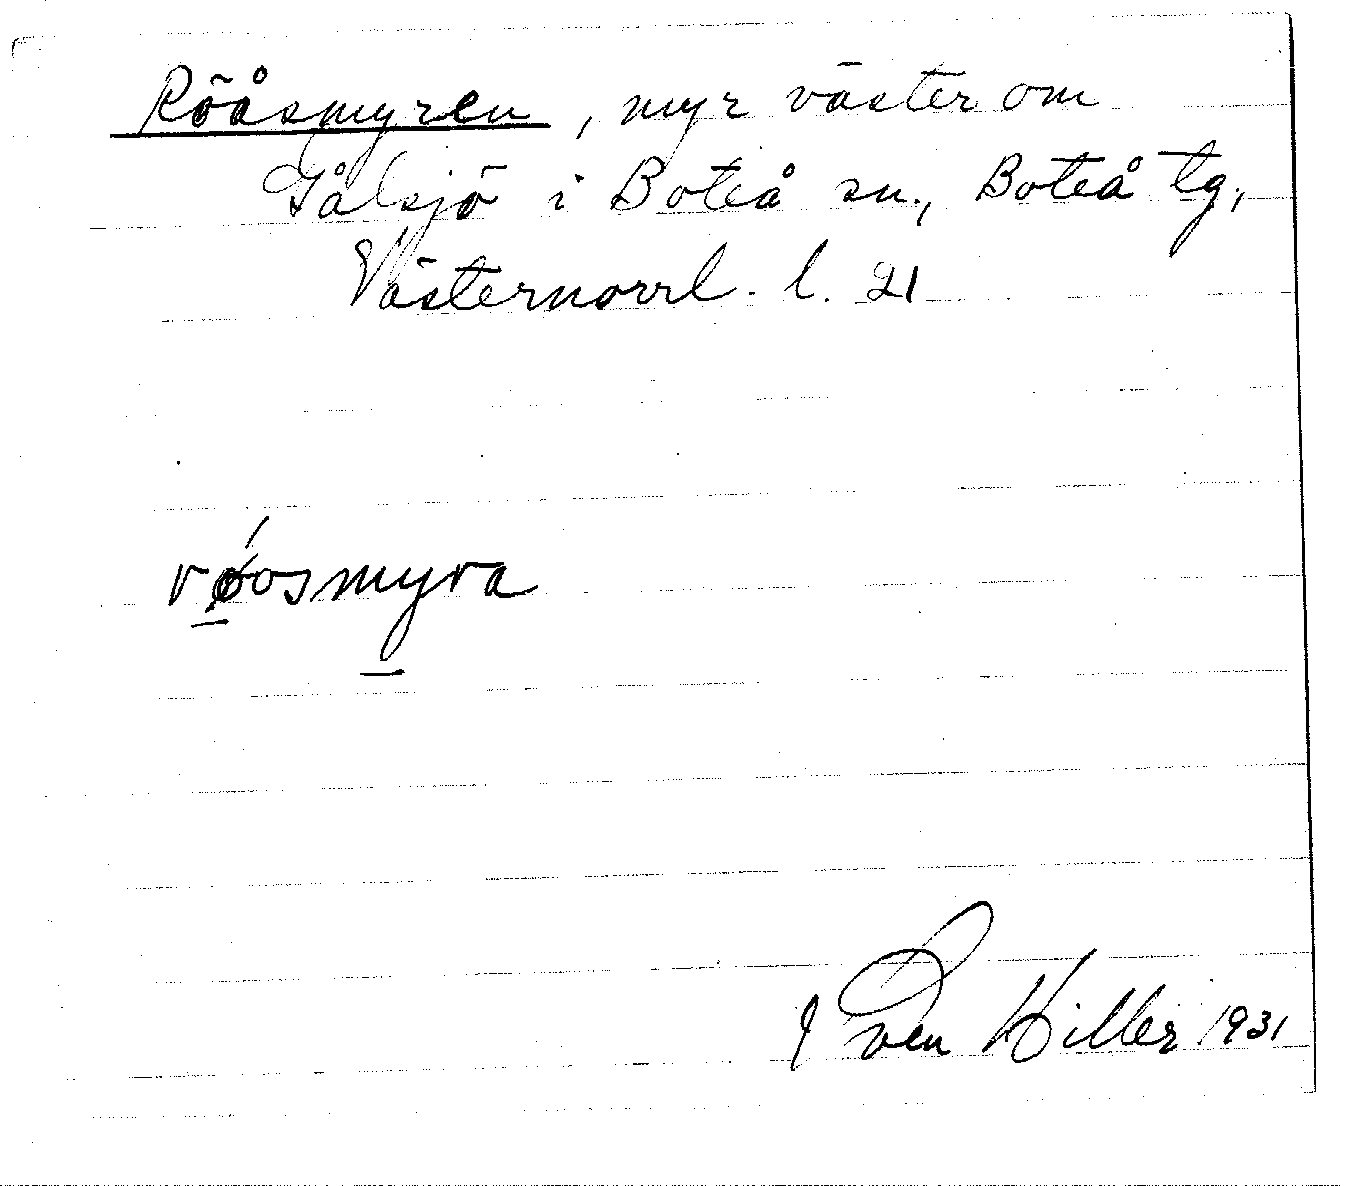 Rõåsmyren, myr väster om
Gålsjö i Boteå sn., Boteå tg,
Västernorrl. l. 21
røosmyra
Sven Hiller 1931